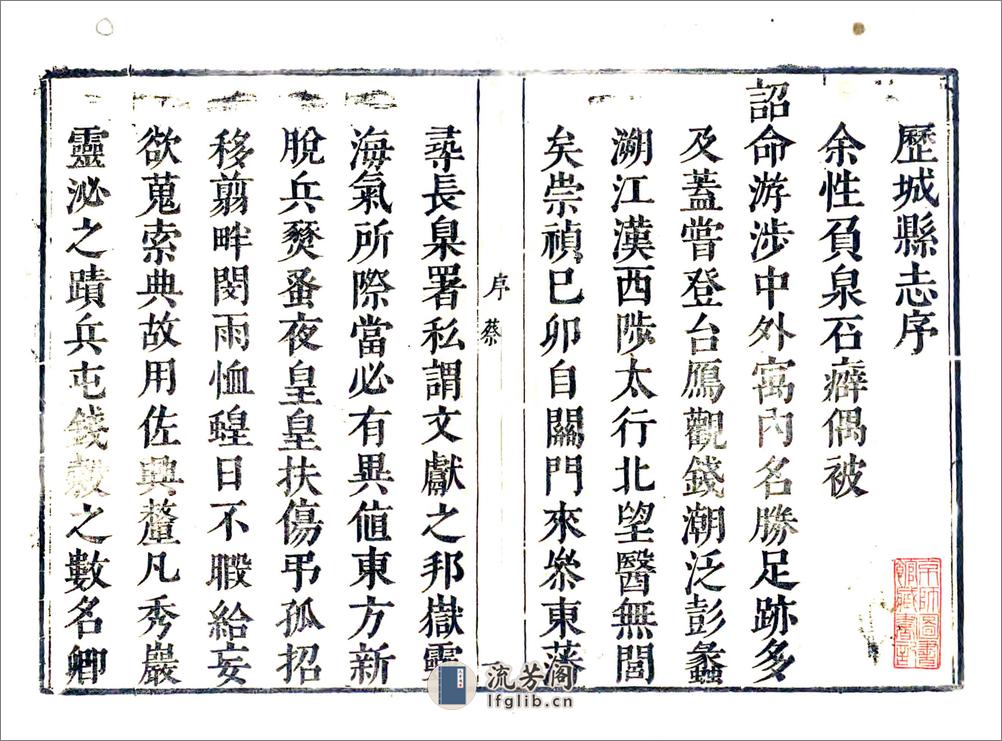 歷城縣志序
余性負泉石癖偶被
詔命游涉中外寓內名勝足跡多
及蓋嘗登台鴈觀錢潮泛彭蠡
溯江漢西陟太行北望醫無閭
矣崇禎巳卯自關門來叅東藩
序 蔡
尋長臬署私謂文獻之邦嶽靈
海氣所際當必有異値東方新
脫兵燹蚤夜皇皇扶傷弔孤招
移翦畔閔雨恤蝗日不暇給妄
欲蒐索典故用佐興釐凡秀巖
靈泌之蹟兵屯錢穀之數名卿
京師圖書
館藏書印
流芳阁
lfglib.cn